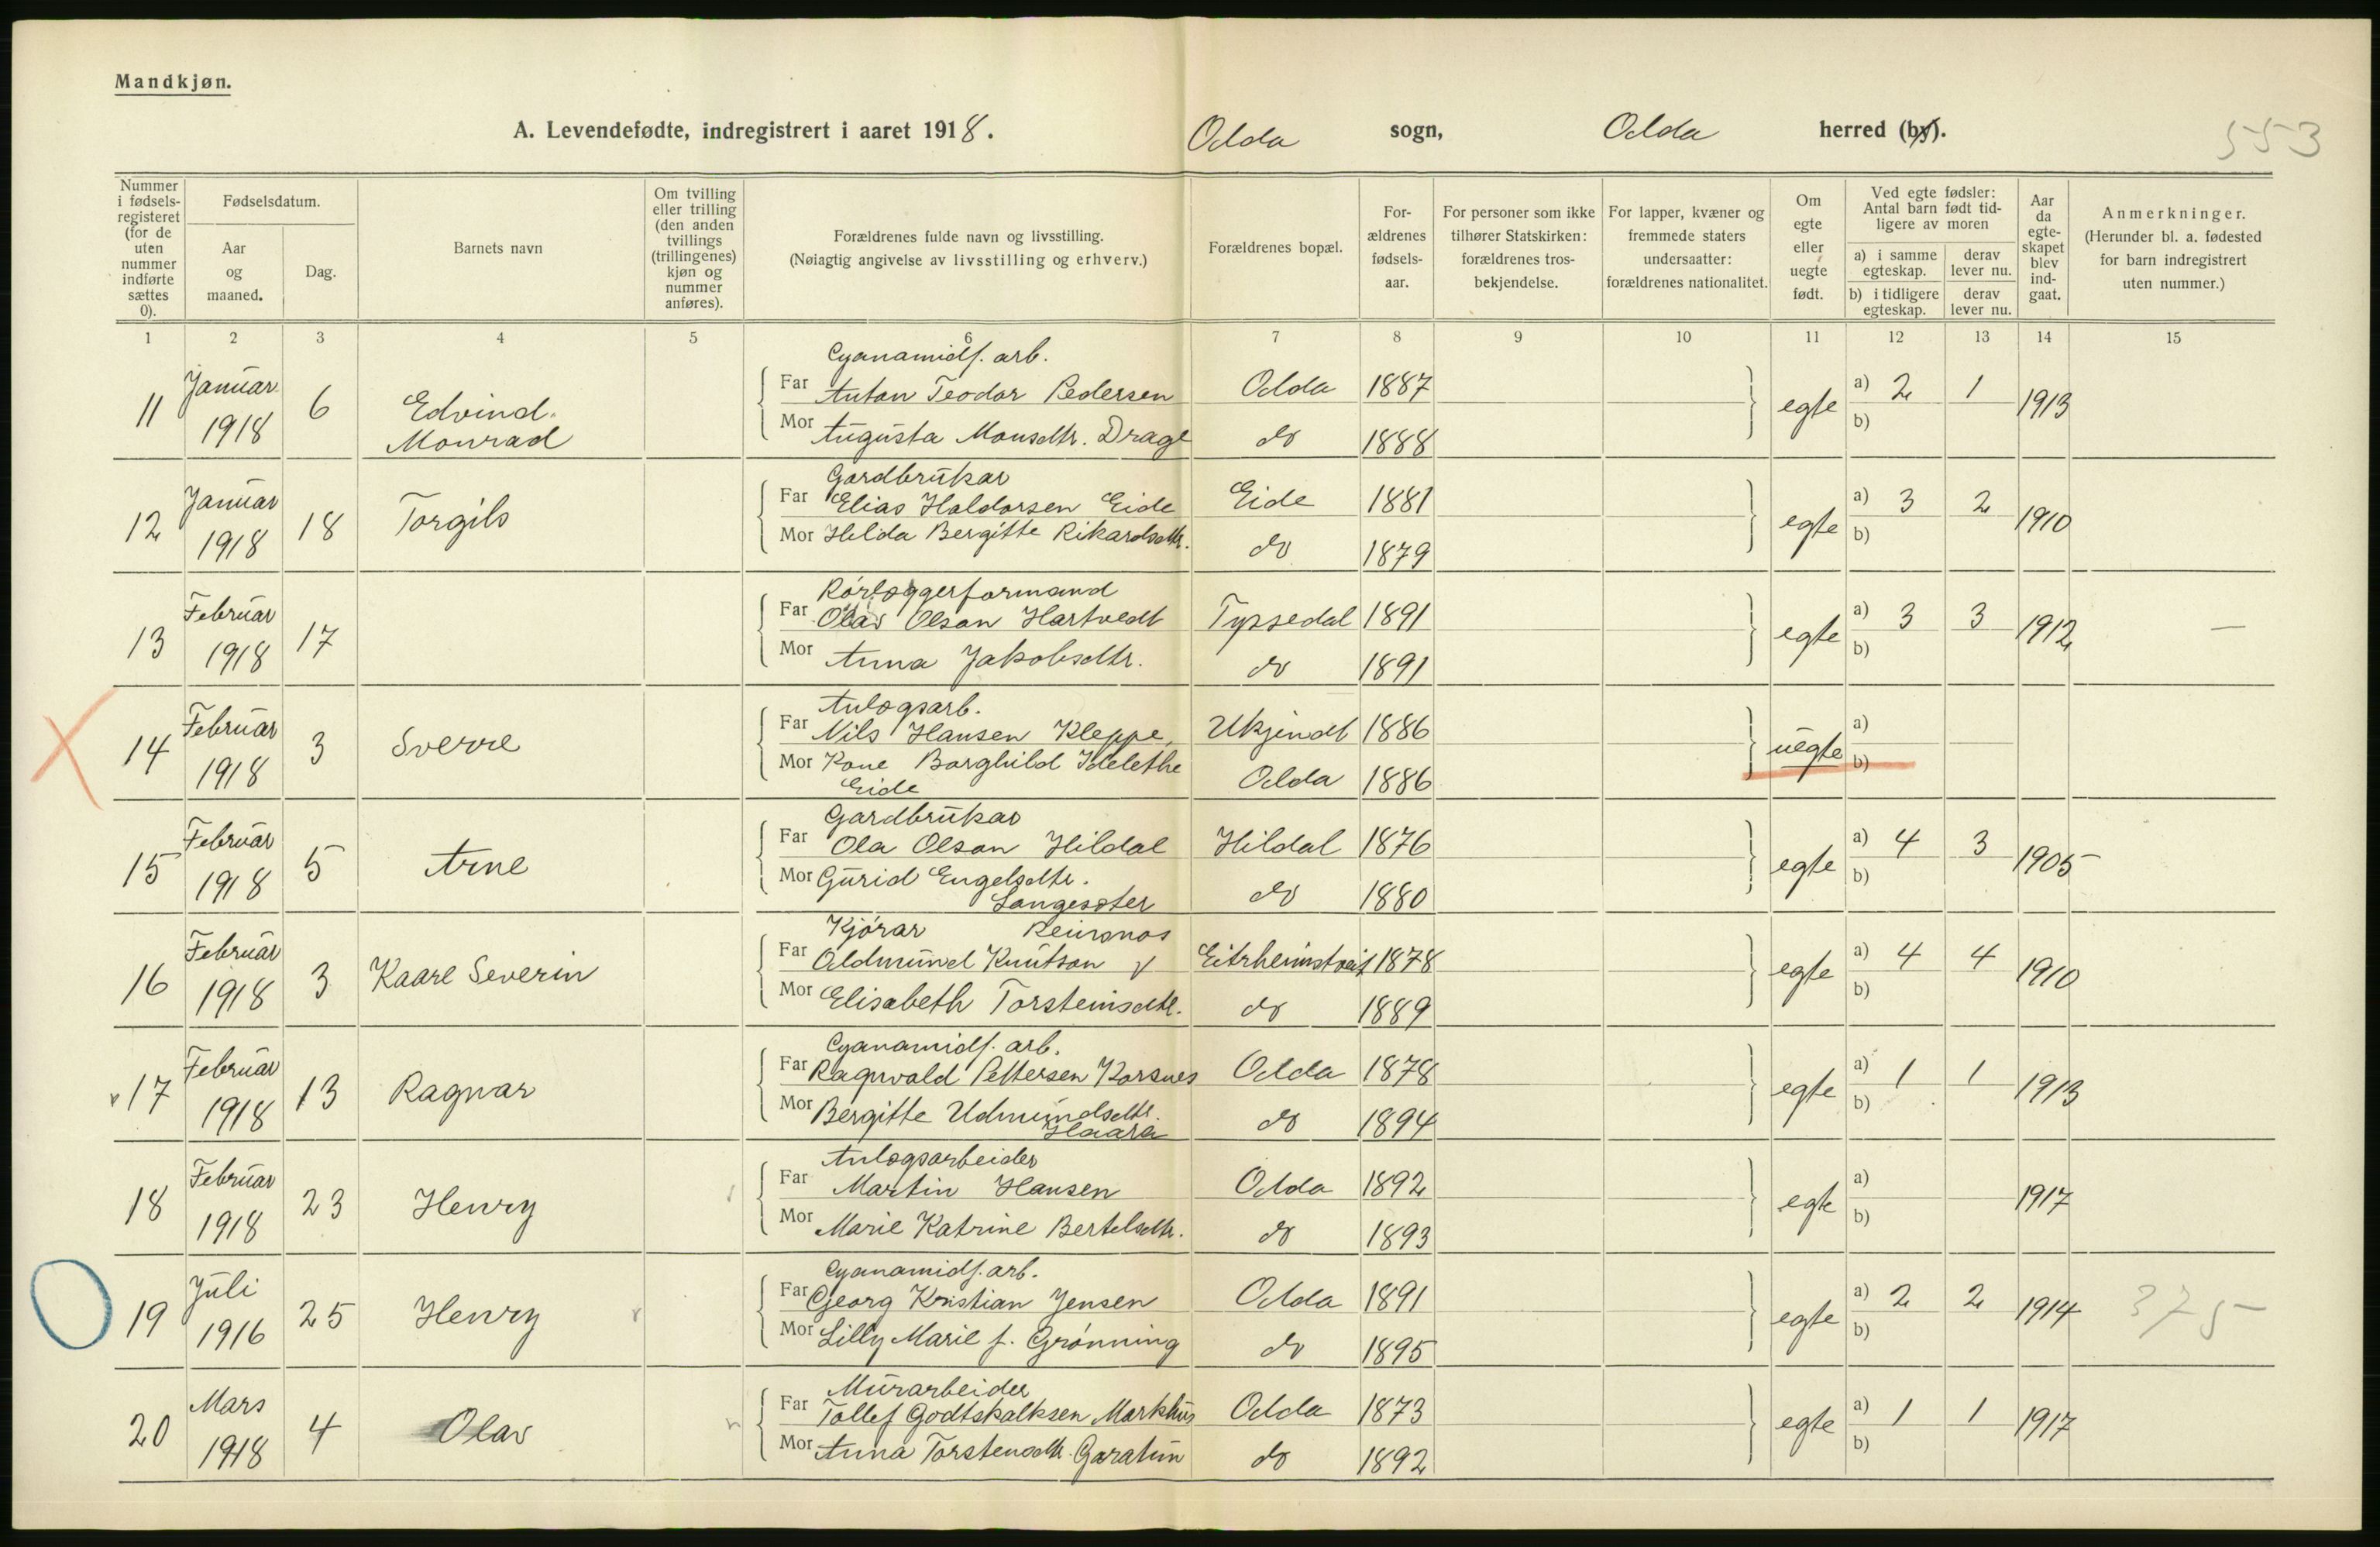 Mandkjøn.
A. Levendefødte, indregistrert i aaret 1918. Odda sogn, Odda herred (by).
553
Nummer i fødsels-registeret (for de uten nummer indførte sættes 0).
Fødselsdatum.
Aar og maaned.
Dag.
Barnets navn
Om tvilling eller trilling (den anden tvillings (trillingenes) kjøn og nummer anføres).
Forældrenes fulde navn og livsstilling.
(Nøiagtig angivelse av livsstilling og erhverv.)
Forældrenes bopæl.
For-ældrenes fødsels-aar.
For personer som ikke tilhører Statskirken: forældrenes tros-bekjendelse.
For lapper, kvæner og fremmede staters undersaatter: forældrenes nationalitet.
Om egte eller uegte født.
Ved egte fødsler: Antal barn født tid-ligere av moren
a) i samme egteskap. derav lever nu.
b) i tidligere egteskap. derav lever nu.
Aar da egte-skapet blev ind-gaat.
Anmerkninger.
(Herunder bl. a. fødested for barn indregistrert uten nummer.)
1 2 3 4 5 6 7 8 9 10 11 12 13 14 15
Cyanamidf. arb.
11 Januar 1918 6 Edvind Monrad
Far Anton Teodor Pedersen Odda 1887 egte a) 2 1 1913
Mor Augusta Monsdtr. Drage do 1888 b)
Gardbrukar
12 Januar 1918 18 Torgils
Far Elias Haldorsen Eide Eide 1881 egte a) 3 2 1910
Mor Hilda Bergitte Rikardsdtr. do 1879 b)
Rórlæggerformand
13 Februar 1918 17
Far Olav Olson Hartvedt Tyssedal 1891 egte a) 3 3 1912 —
Mor Anna Jakobsdtr. do 1891 b)
Anlægsarb.
14 Februar 1918 3 Sverre
Far Nils Hansen Kleppe, Ukjendt 1886 uegte a)
Mor Kone Borghild Idelethe Eide Odda 1886 b)
Gardbrukar
15 Februar 1918 5 Arne
Far Ola Olson Hildal Hildal 1876 egte a) 4 3 1905
Mor Gurid Engelsdtr. Langesæter do 1880 b)
Kjórar Reinsnos
16 Februar 1918 3 Kaare Severin
Far Oddmund Knutson Eitrheimstveit 1878 egte a) 4 4 1910
Mor Elisabeth Torsteinsdtr. do 1889 b)
Cyanamidf. arb.
17 Februar 1918 13 Ragnar
Far Ragnvald Pettersen Korsnes Odda 1878 egte a) 1 1 1913
Mor Bergitte Udmundsdtr. Haara do 1894 b)
Anlægsarbeider
18 Februar 1918 23 Henry
Far Martin Hansen Odda 1892 egte a) 1917
Mor Marie Katrine Bertelsdtr. do 1893 b)
Cyanamidf. arb.
19 Juli 1916 25 Henry
Far Georg Kristian Jensen Odda 1891 egte a) 2 2 1914 375
Mor Lilly Marie f. Grønning do 1895 b)
Murarbeider
20 Mars 1918 4 Olav
Far Tollef Godtskalksen Markhus Odda 1873 egte a) 1 1 1917
Mor Anna Torstensdtr. Garatun do 1892 b)